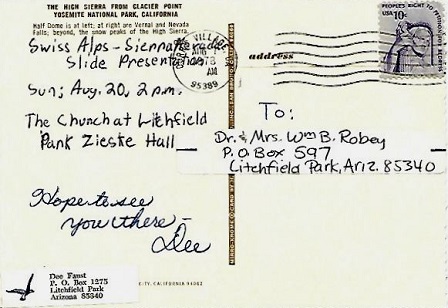 THE HIGH SIERRA FROM GLACIER POINT
YOSEMITE NATIONAL PARK, CALIFORNIA
Half Dome is at left; at right are Vernal and Nevada
Falls; beyond, the snow peaks of the High Sierra.
Swiss Alps - Sierra Nevada
Slide Presentation
Sun; Aug. 20, 2 p.m.
The Church at Litchfield
Park Zieske Hall
Hope to see
you there -
Dee
Dee Faust
P. O. Box 1275
Litchfield Park
Arizona 85340
CITY, CALIFORNIA
VILLAGE
1978
AM
95389
address
PEOPLE'S RIGHT TO
US 10c
To:
Dr. & Mrs. Wm B. Robey
P. O. Box 597
Litchfield Park, Ariz. 85340